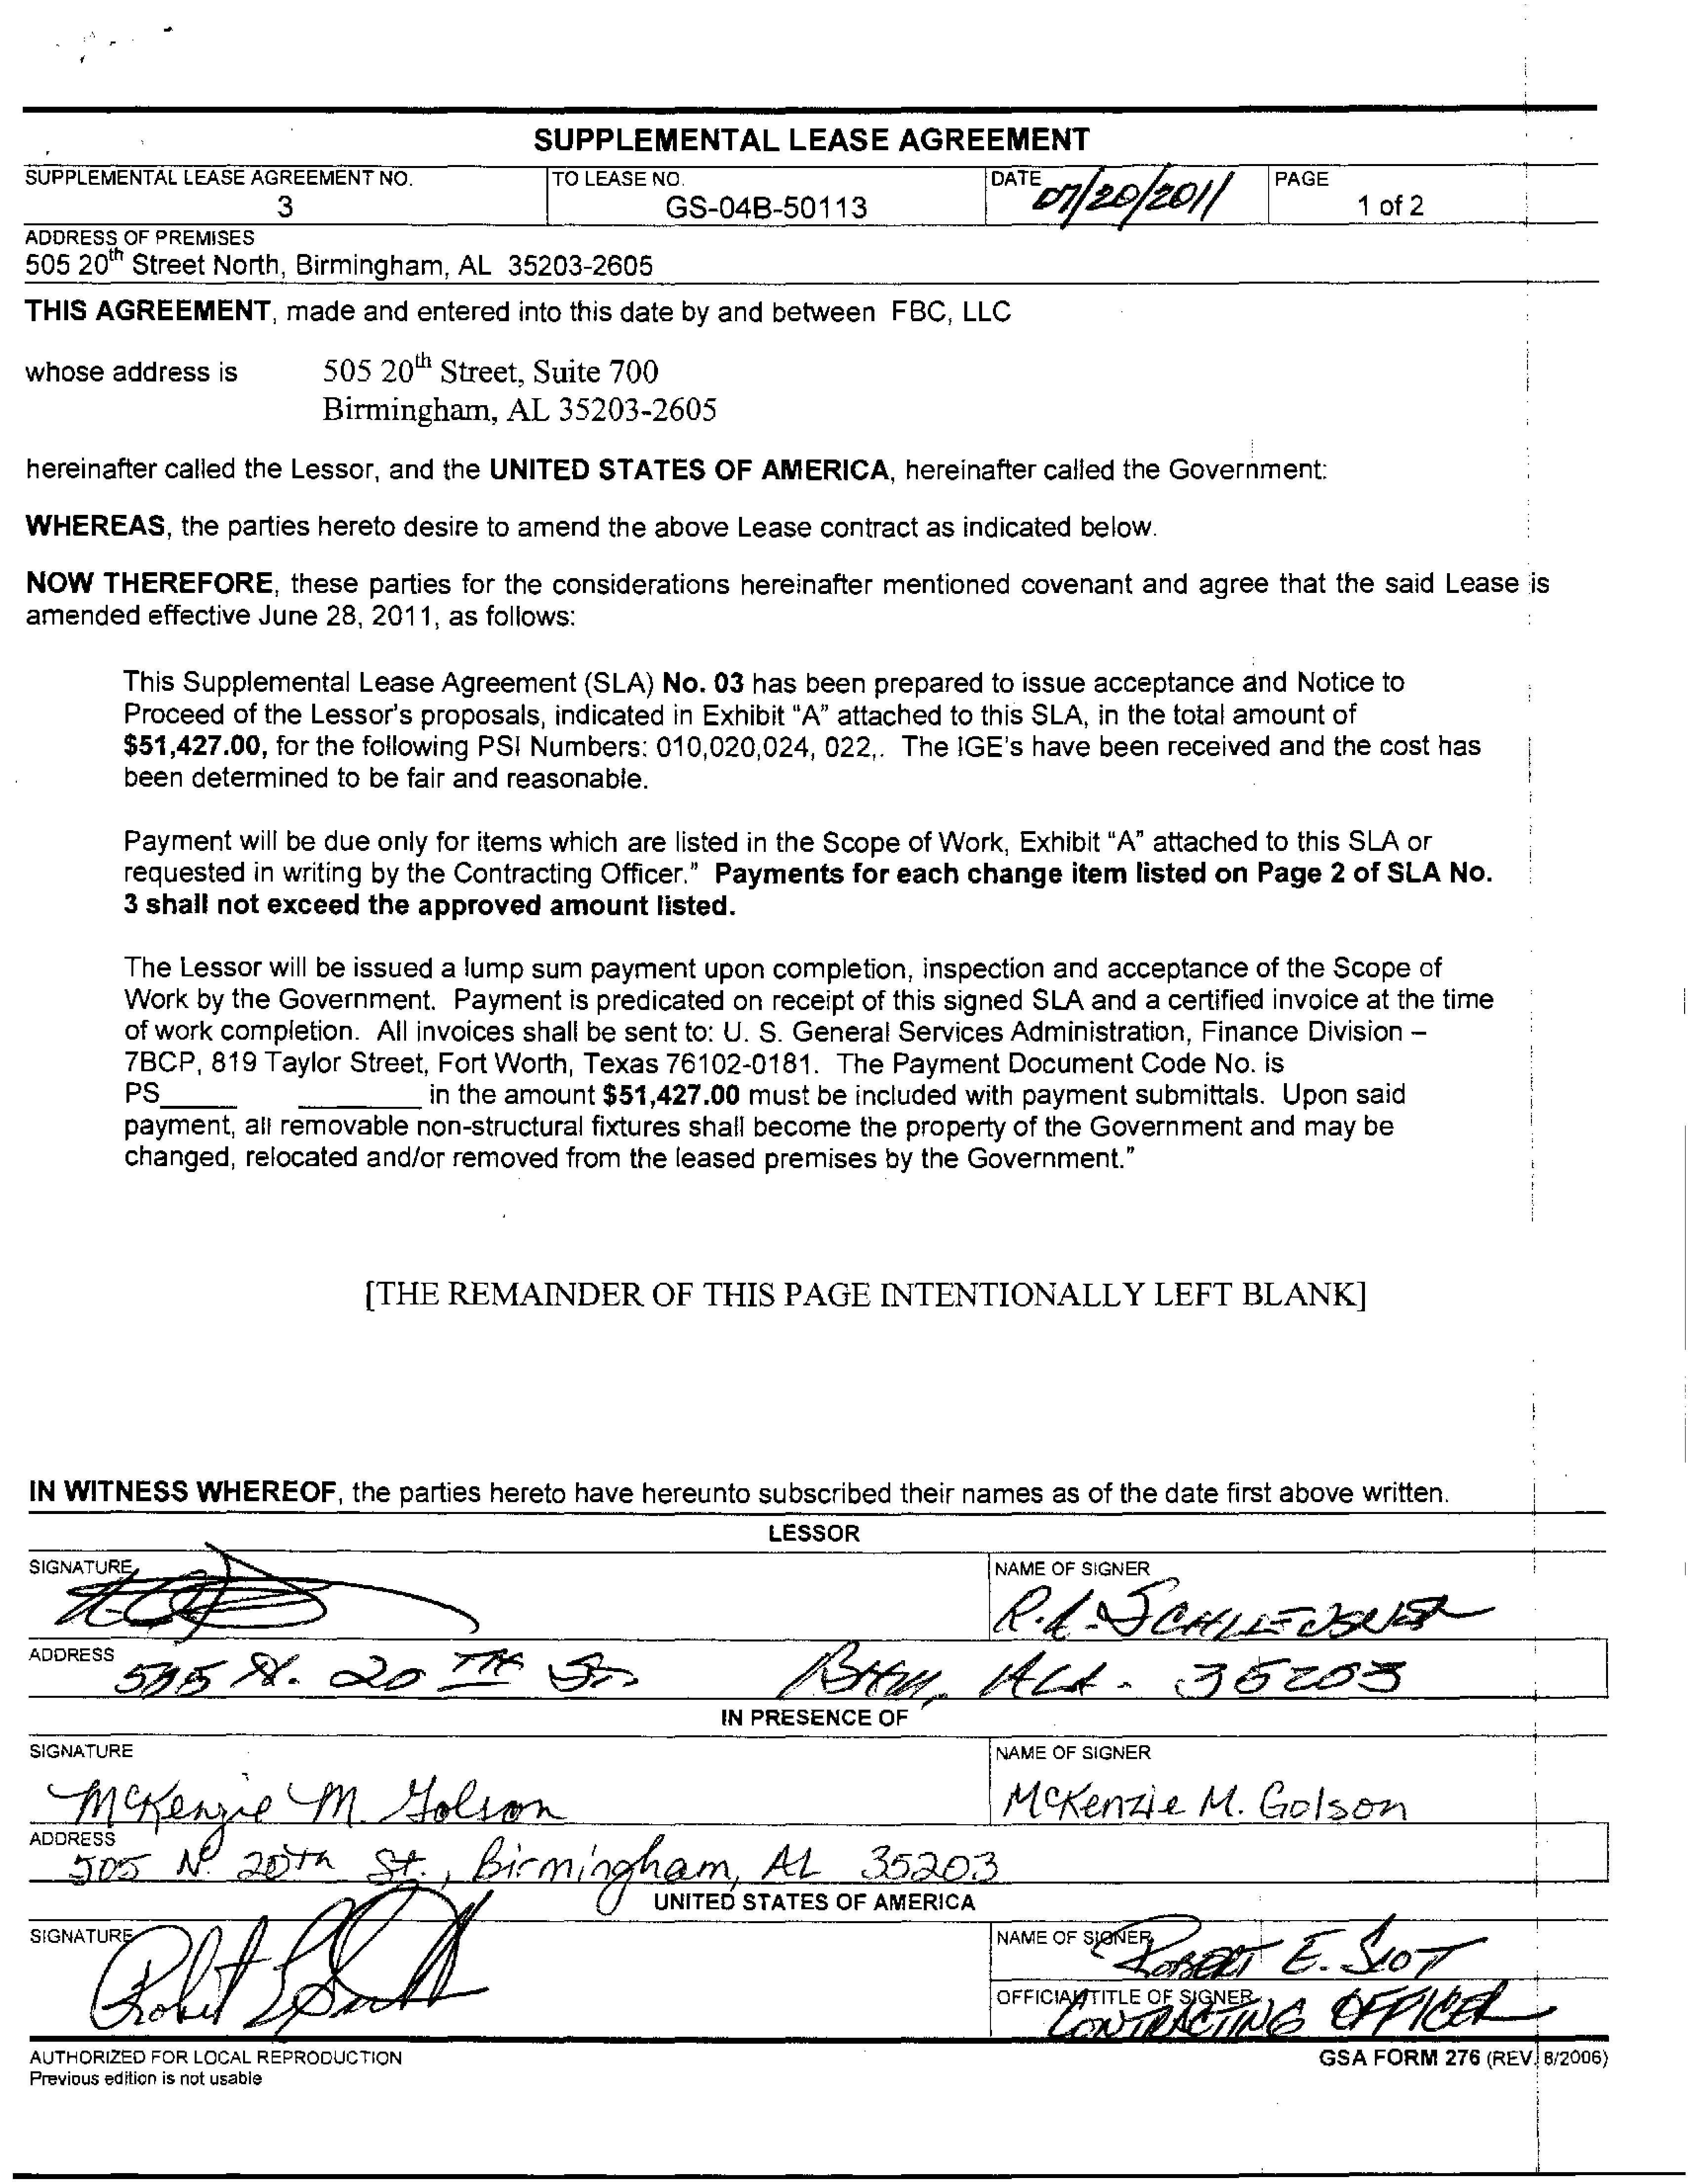 SUPPLEMENTAL LEASE AGREEMENT
SUPPLEMENTAL LEASE AGREEMENT NO.
3
TO LEASE NO.
GS-04B-50113
DATE 07/20/2011
PAGE
1 of 2
ADDRESS OF PREMISES
505 20th Street North, Birmingham, AL 35203-2605
THIS AGREEMENT, made and entered into this date by and between FBC, LLC
whose address is 505 20th Street, Suite 700
Birmingham, AL 35203-2605
hereinafter called the Lessor, and the UNITED STATES OF AMERICA, hereinafter called the Government:
WHEREAS, the parties hereto desire to amend the above Lease contract as indicated below.
NOW THEREFORE, these parties for the considerations hereinafter mentioned covenant and agree that the said Lease is
amended effective June 28, 2011, as follows:
This Supplemental Lease Agreement (SLA) No. 03 has been prepared to issue acceptance and Notice to
Proceed of the Lessor's proposals, indicated in Exhibit "A" attached to this SLA, in the total amount of
$51,427.00, for the following PSI Numbers: 010,020,024, 022,. The IGE's have been received and the cost has
been determined to be fair and reasonable.
Payment will be due only for items which are listed in the Scope of Work, Exhibit "A" attached to this SLA or
requested in writing by the Contracting Officer." Payments for each change item listed on Page 2 of SLA No.
3 shall not exceed the approved amount listed.
The Lessor will be issued a lump sum payment upon completion, inspection and acceptance of the Scope of
Work by the Government. Payment is predicated on receipt of this signed SLA and a certified invoice at the time
of work completion. All invoices shall be sent to: U. S. General Services Administration, Finance Division –
7BCP, 819 Taylor Street, Fort Worth, Texas 76102-0181. The Payment Document Code No. is
PS_____ ________ in the amount $51,427.00 must be included with payment submittals. Upon said
payment, all removable non-structural fixtures shall become the property of the Government and may be
changed, relocated and/or removed from the leased premises by the Government."
[THE REMAINDER OF THIS PAGE INTENTIONALLY LEFT BLANK]
IN WITNESS WHEREOF, the parties hereto have hereunto subscribed their names as of the date first above written.
LESSOR
SIGNATURE
NAME OF SIGNER
ADDRESS
505 N. 20TH ST. BHM, ALA. 35203
IN PRESENCE OF
SIGNATURE
McKenzie M. Golson
NAME OF SIGNER
McKenzie M. Golson
ADDRESS
505 N. 20th St., Birmingham, AL 35203
UNITED STATES OF AMERICA
SIGNATURE
NAME OF SIGNER
ROBERT E. SCOTT
OFFICIAL TITLE OF SIGNER
CONTRACTING OFFICER
AUTHORIZED FOR LOCAL REPRODUCTION
Previous edition is not usable
GSA FORM 276 (REV. 8/2006)